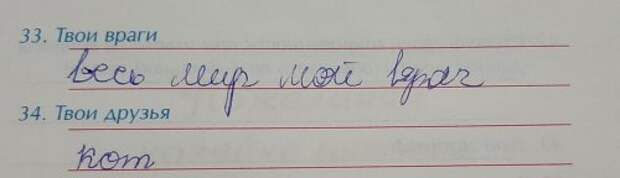 33. Твои враги
весь мир мой враг
34. Твои друзья
кот